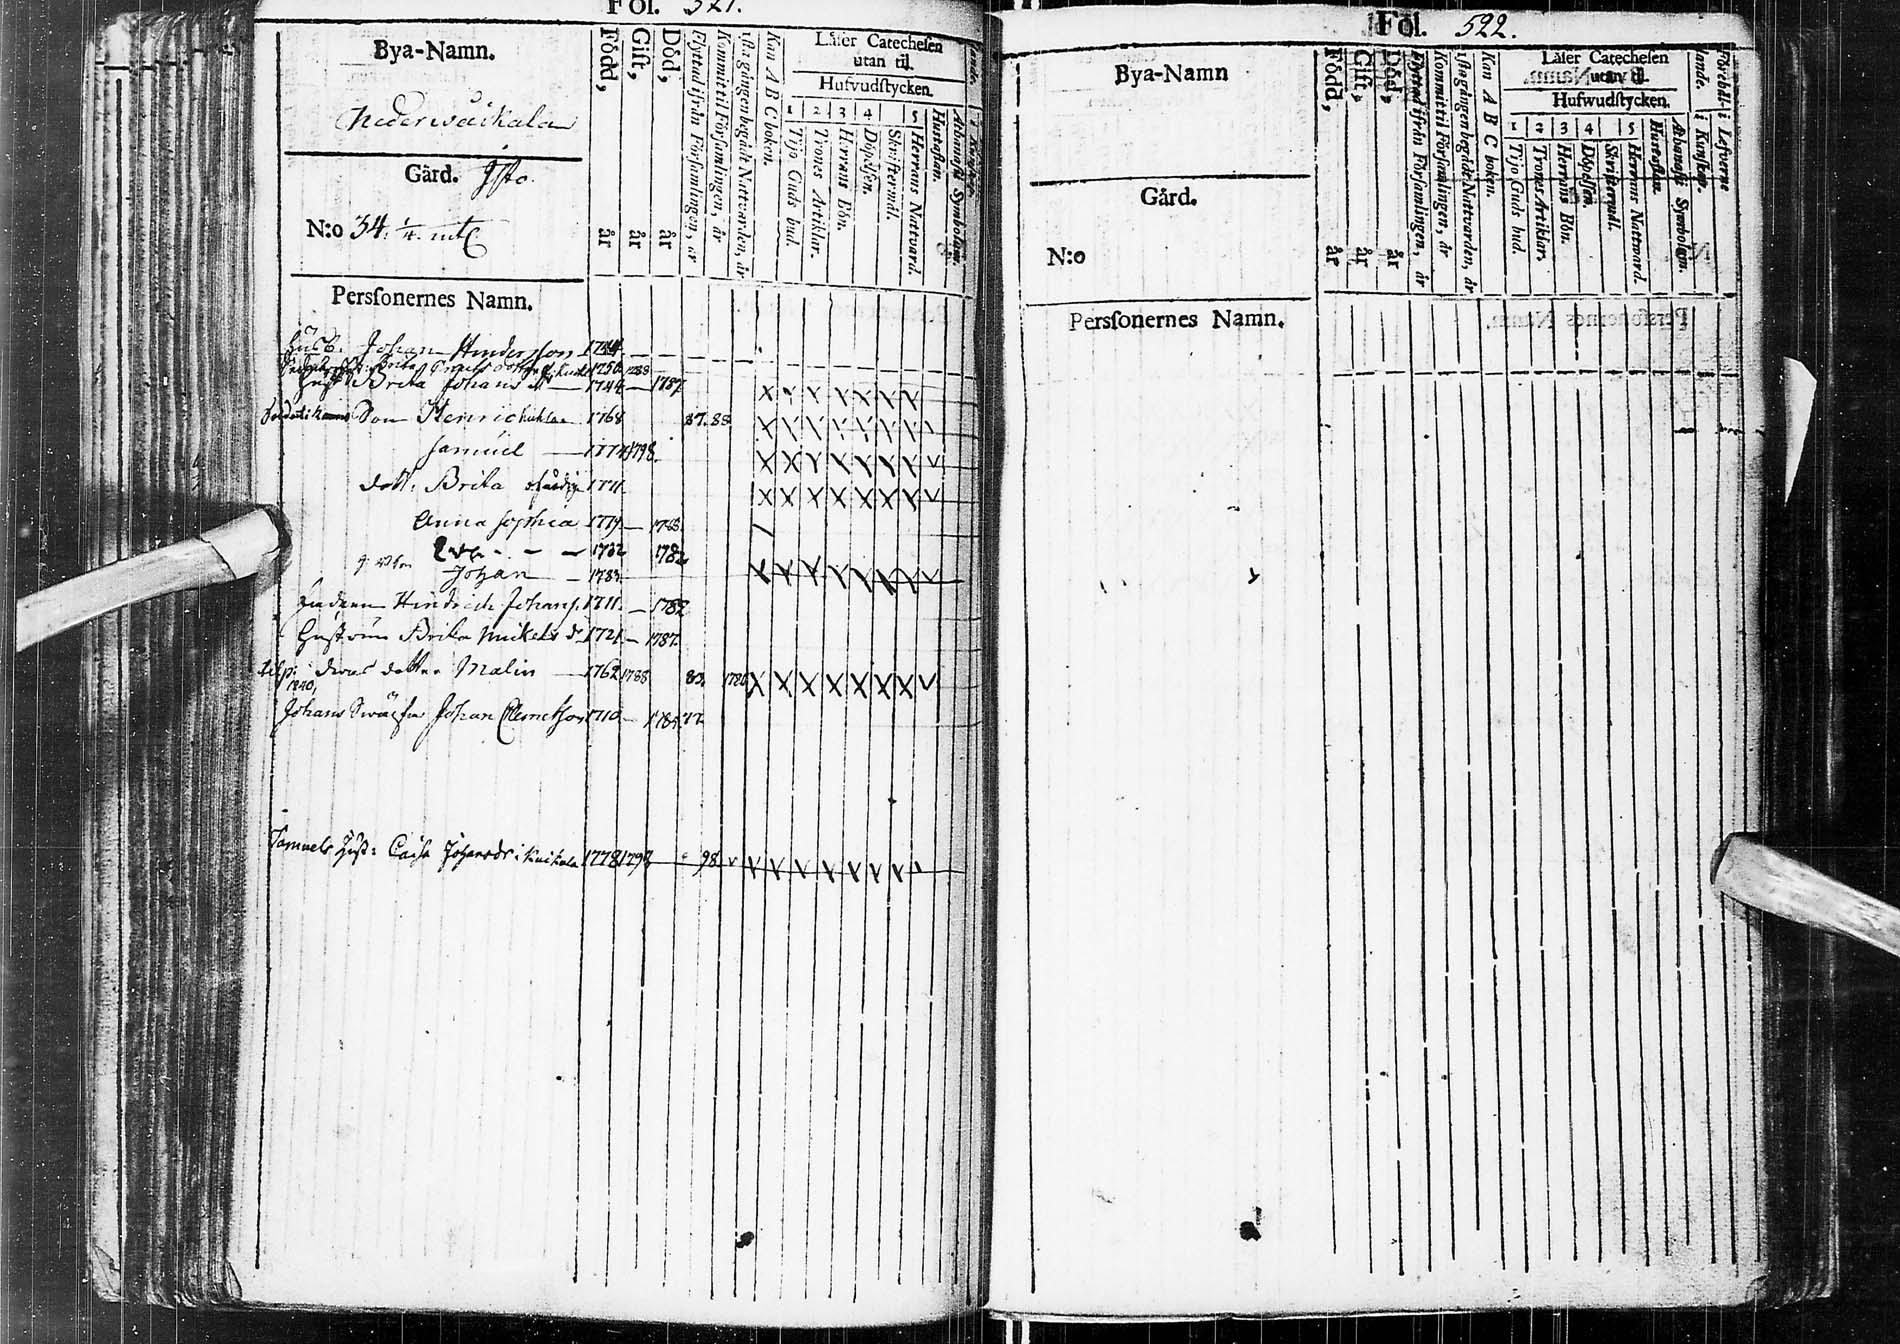 Fol. 521.
Bya-Namn.
Nederwäikala
Gård. Ysto.
N:o 34. 1/4. mtl
Persſonernes Namn.
Född, år
Gift, år
Död, år
Flyttad ifrån Förſamlingen, år
Kommit til Förſamlingen, år
1ſta gången begådt Nattvarden, år
Kan A B C boken.
Låſer Catecheſen
utan til.
Hufvudſtycken.
1 2 3 4 5
Tijo Guds bud.
Trones Artiklar.
Herrans Bön.
Döpelſen.
Skriftermål.
Herrans Nattvard.
Huſtaflan.
Athanaſii Symbolum.
Husb. Johan Hindersson 1744
Brita 1750 1788
Hust Brita Johans d 1744 1787
Son Henric 1768 87. 88
Samuel 1774 1798
dott. Brita 1771
Anna Sophia 1779 1788
Eva 1782 1782
Johan 1783
Hindrich Johans. 1711 1789
Hustrun Brita Mickels d 1721 1787
1840, deras dotter Malin 1762 1788 83. 1786
Johans Swåger Johan Clemetson 1710 1785 77
Samuels Hust: Caisa Johansdr i Kuikala 1778 1798 98
Fol. 522.
Bya-Namn
Gård.
N:o
Persſonernes Namn.
Född, år
Gift, år
Död, år
Flyttad ifrån Förſamlingen, år
Kommit til Förſamlingen, år
1ſta gången begådt Nattvarden, år
Kan A B C boken.
Låſer Catecheſen
utan til.
Hufwudſtycken.
1 2 3 4 5
Tijo Guds bud.
Trones Artiklar.
Herrans Bön.
Döpelſen.
Skriftermål.
Herrans Nattvard.
Huſtaflan.
Athanaſii Symbolum.